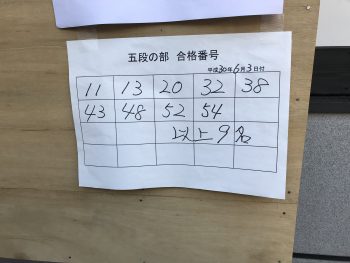 五段の部 合格番号
平成30年6月3日付
11 13 20 32 38
43 48 52 54
以上9名